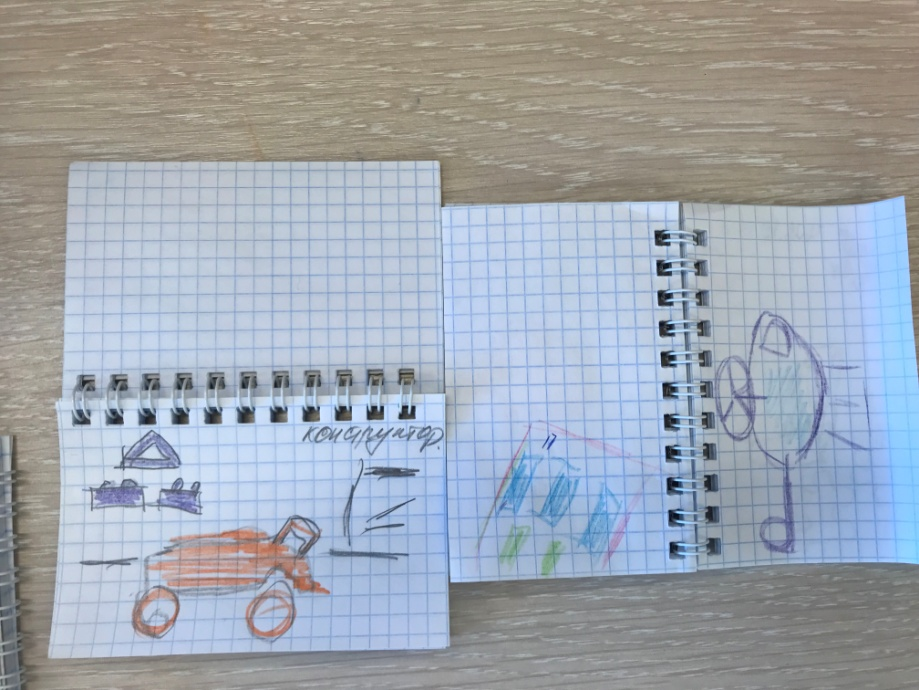 конструктор.